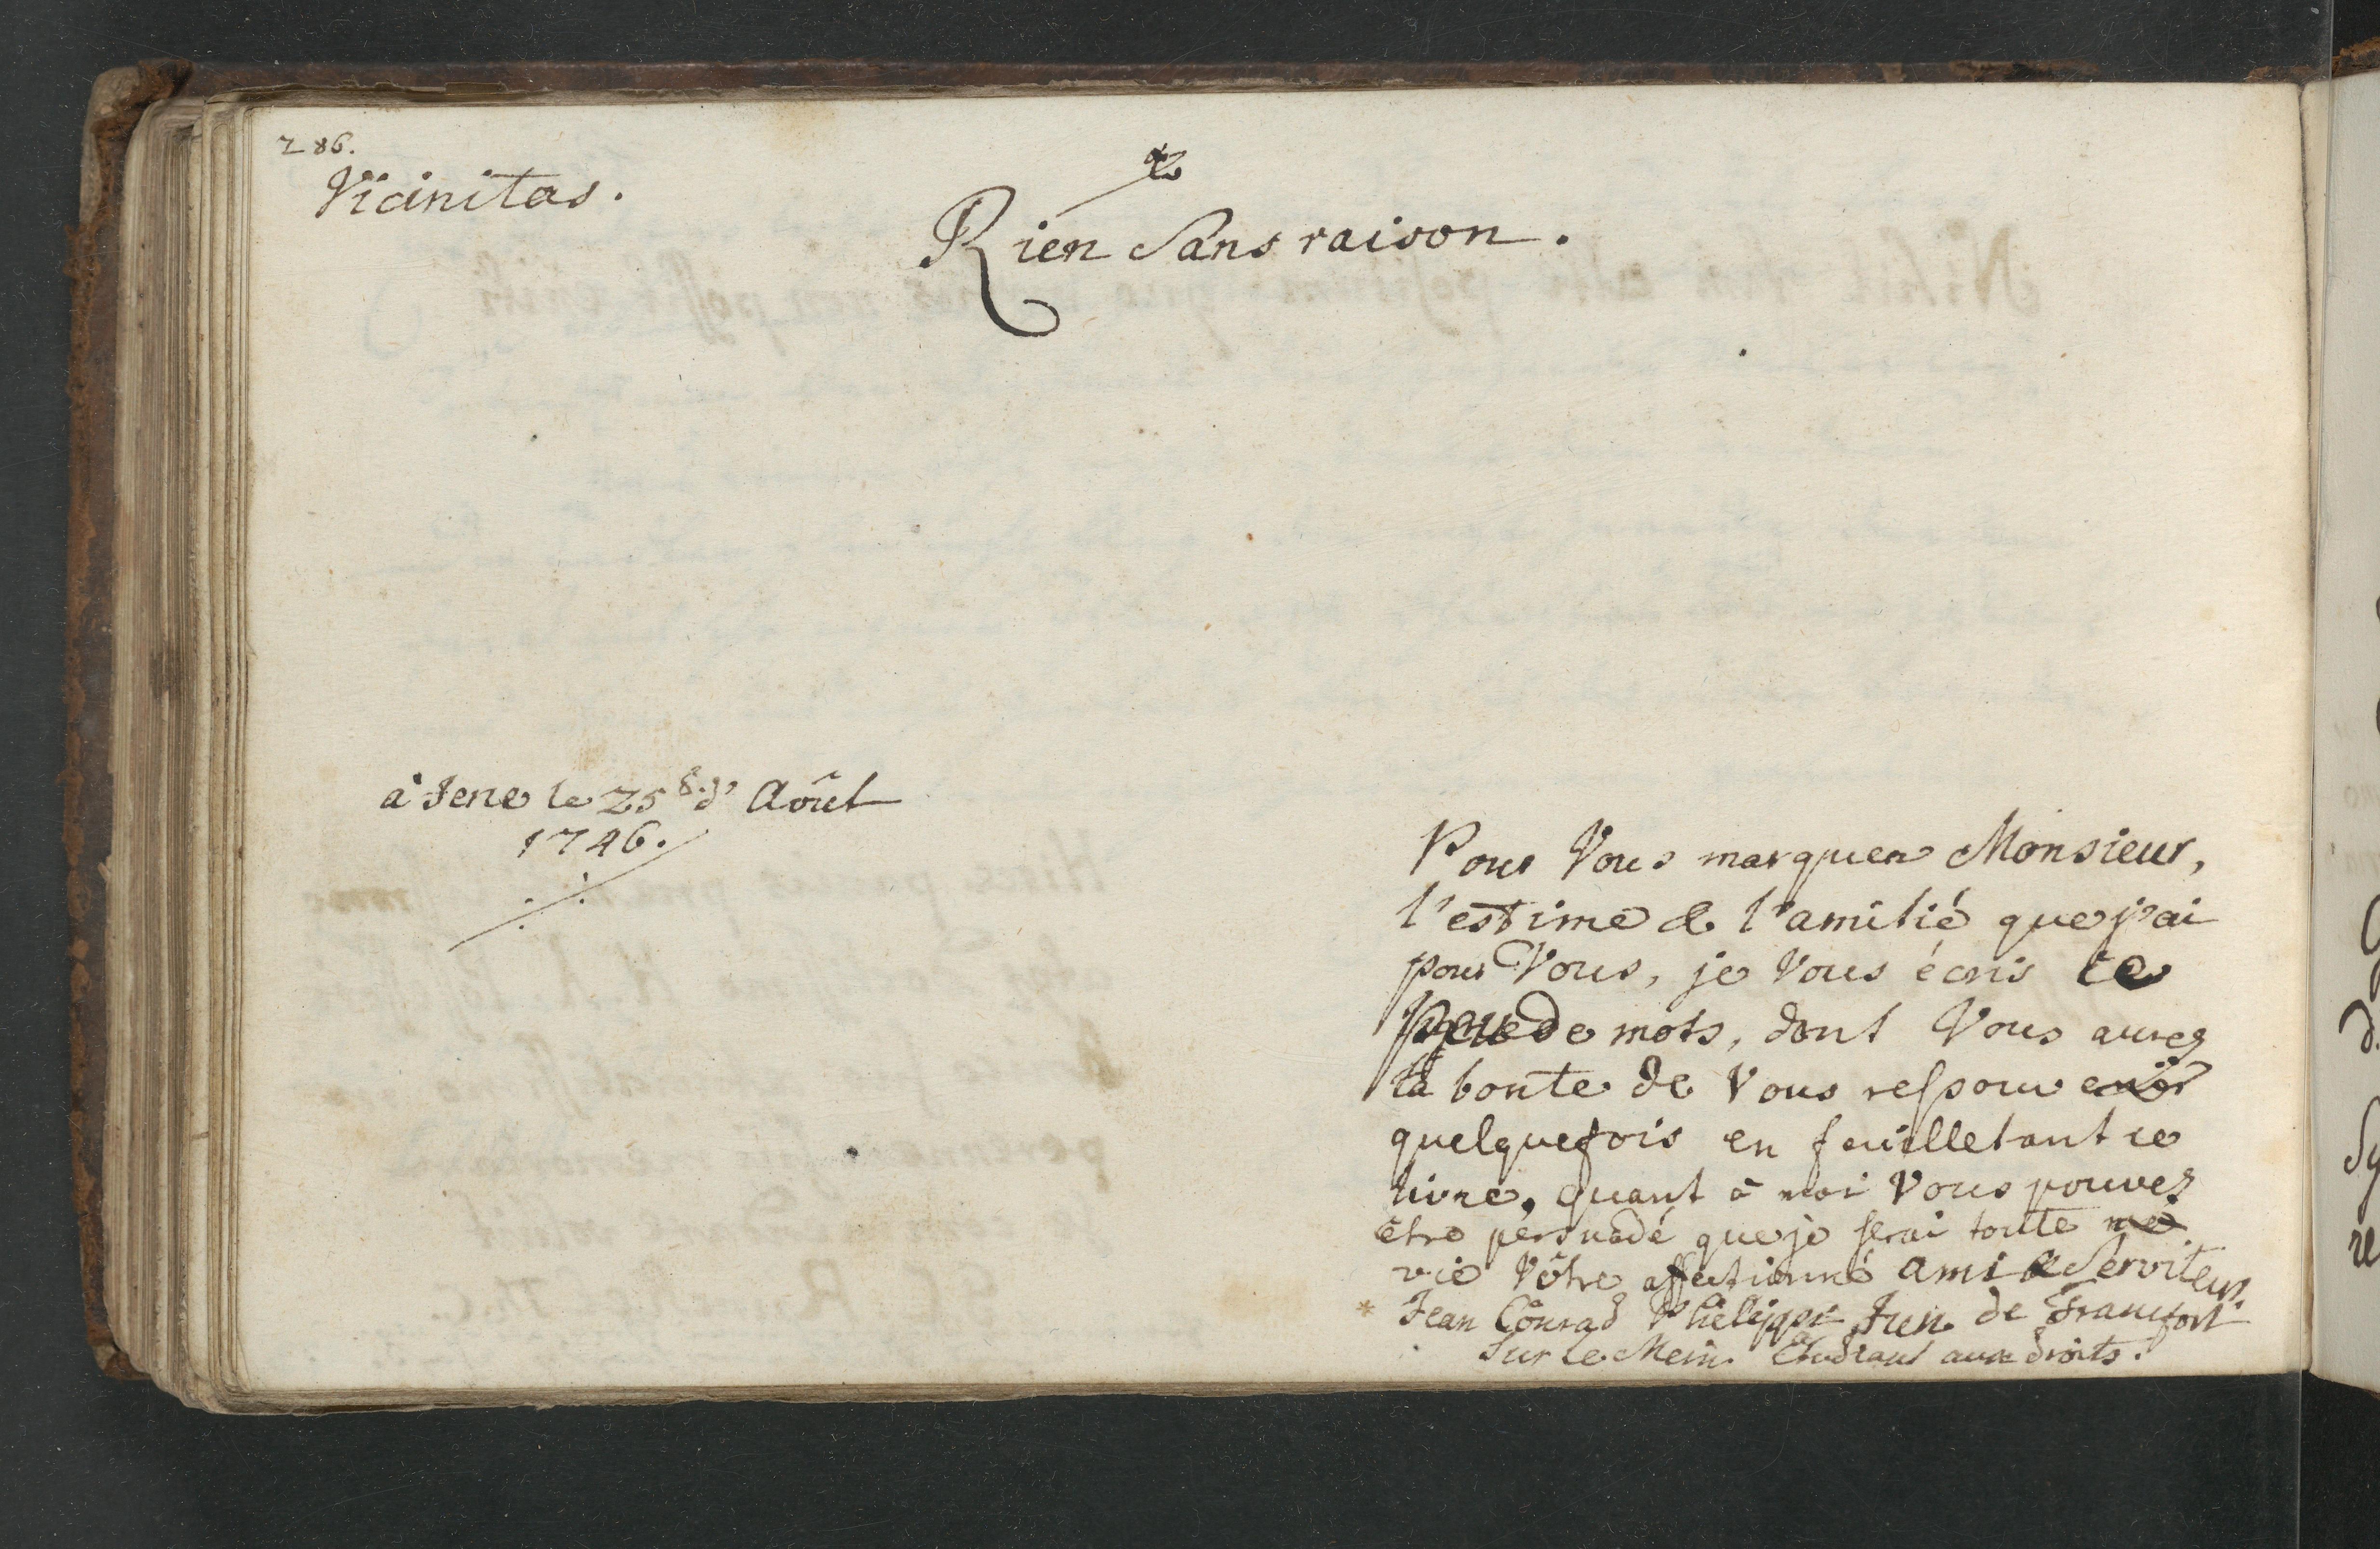 286.
Vicinitas.
Rien Sans raison.
à Jene le 25 d' Aôut
1746.
Pour Vous marquer Monsieur,
l'estime & l'amitié que j'ai
pour Vous, je Vous écris ce
peu de mots, dont Vous aures
la bonte de Vous ressouvenir
quelquefois en feuilletant ce
livre, quant à moi Vous pouvez
être persuadé que je serai toute me
vie Vôtre affectionné ami & Serviteur.
* Jean Conrad Philippe Jun de Francfort
Sur le Mein. Etudiant aux droits.